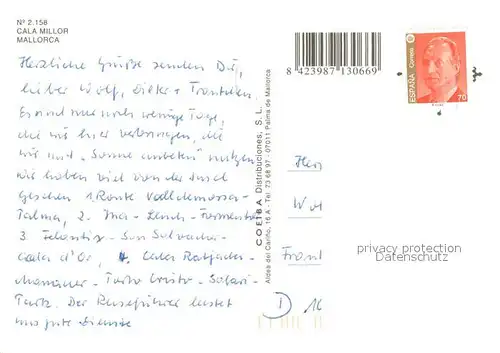 Nº 2.158
CALA MILLOR
MALLORCA
Herzliche Grüße senden Dir,
lieber Wolf, Dieter + Trautchen.
Es sind nur noch wenige Tage,
die wir hier verbringen, die
wir mit „Sonne anbeten" nutzen,
wir haben viel von der Insel
gesehen 1. Route Valldemossa-
Palma, 2. Inca - Lluch - Formentor
3. Felanitx - San Salvador -
Cala d'Or, 4. Calas Ratjada -
Manacor - Porto Cristo - Safari-
Park. Der Reiseführer leistet
uns gute Dienste
COEIBA Distribuciones, S. L.
Aldea del Cariño, 16 A - Tel. 73 68 97 - 07011 Palma de Mallorca
8 423987 130669
ESPAÑA Correos
70
Herr
Wol
Frank
D 16
privacy protection
Datenschutz